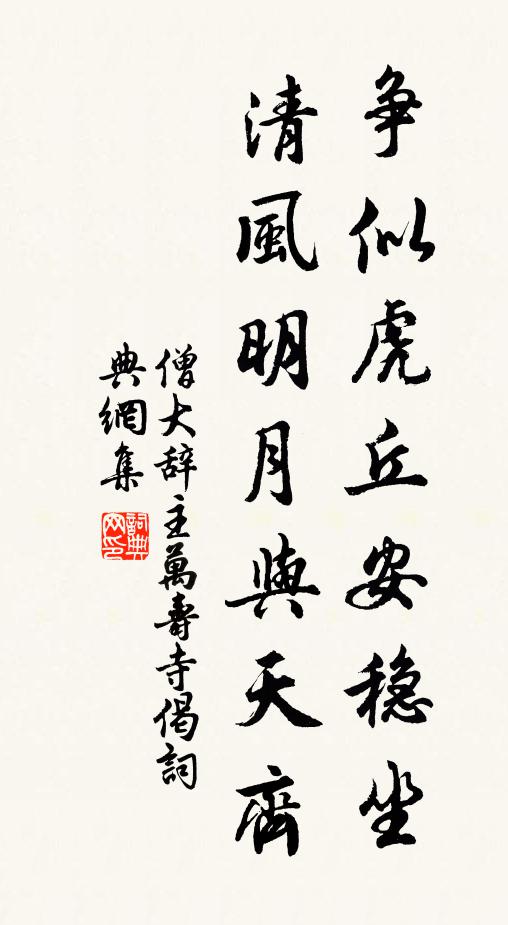 争似虎丘安稳坐
清風明月與天齊
僧大辞主萬壽寺偈詞
典網集
詞典
网印